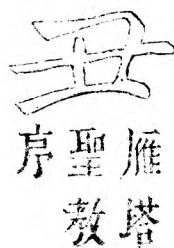 丑
雁塔
聖教
序